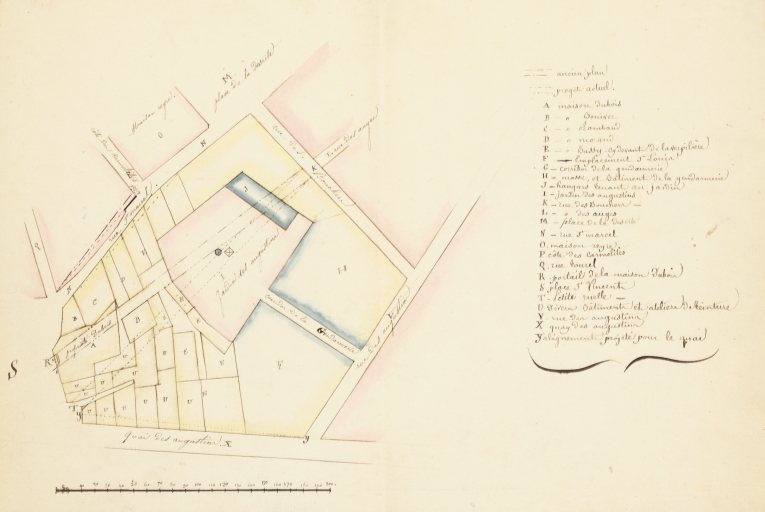 M
place de la Déserte
Maison reyre
O
N
rue des Bouchers
L, rue des auges
rue St marcel
J
jardin des augustins
H
corridor de la Gendarmerie
rue des augustins
F
B
C
D
E
N
A
R
S
T
U
quai des augustins X
y
ancien plan
projet actuel
A maison dubois
B - " Bouvier
D - " morand
F - Emplacement St Louis
G - corridor de la gendarmerie
H - masse, et Bâtiment de la gendarmerie
J - hangars tenant au jardin
I - jardin des augustins
K - rue des Bouchers -
L - " des auges
M - place de la déserte
N - rue St marcel
O, maison reyre
P côte des Carmelites
Q, rue
R, portail de la maison Dubois
S place St Vincent
T - petite ruelle -
U Divers Bâtiments et ateliers de teinture
V - rue des augustins
X quay des augustins
y alignement projeté pour le quai